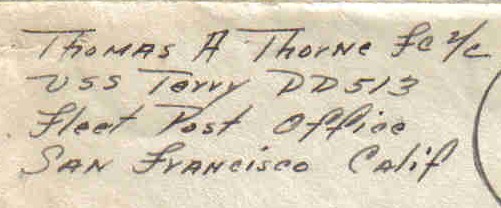 Thomas A Thorne FC 2/c
USS Terry DD513
Fleet Post Office
San Francisco Calif